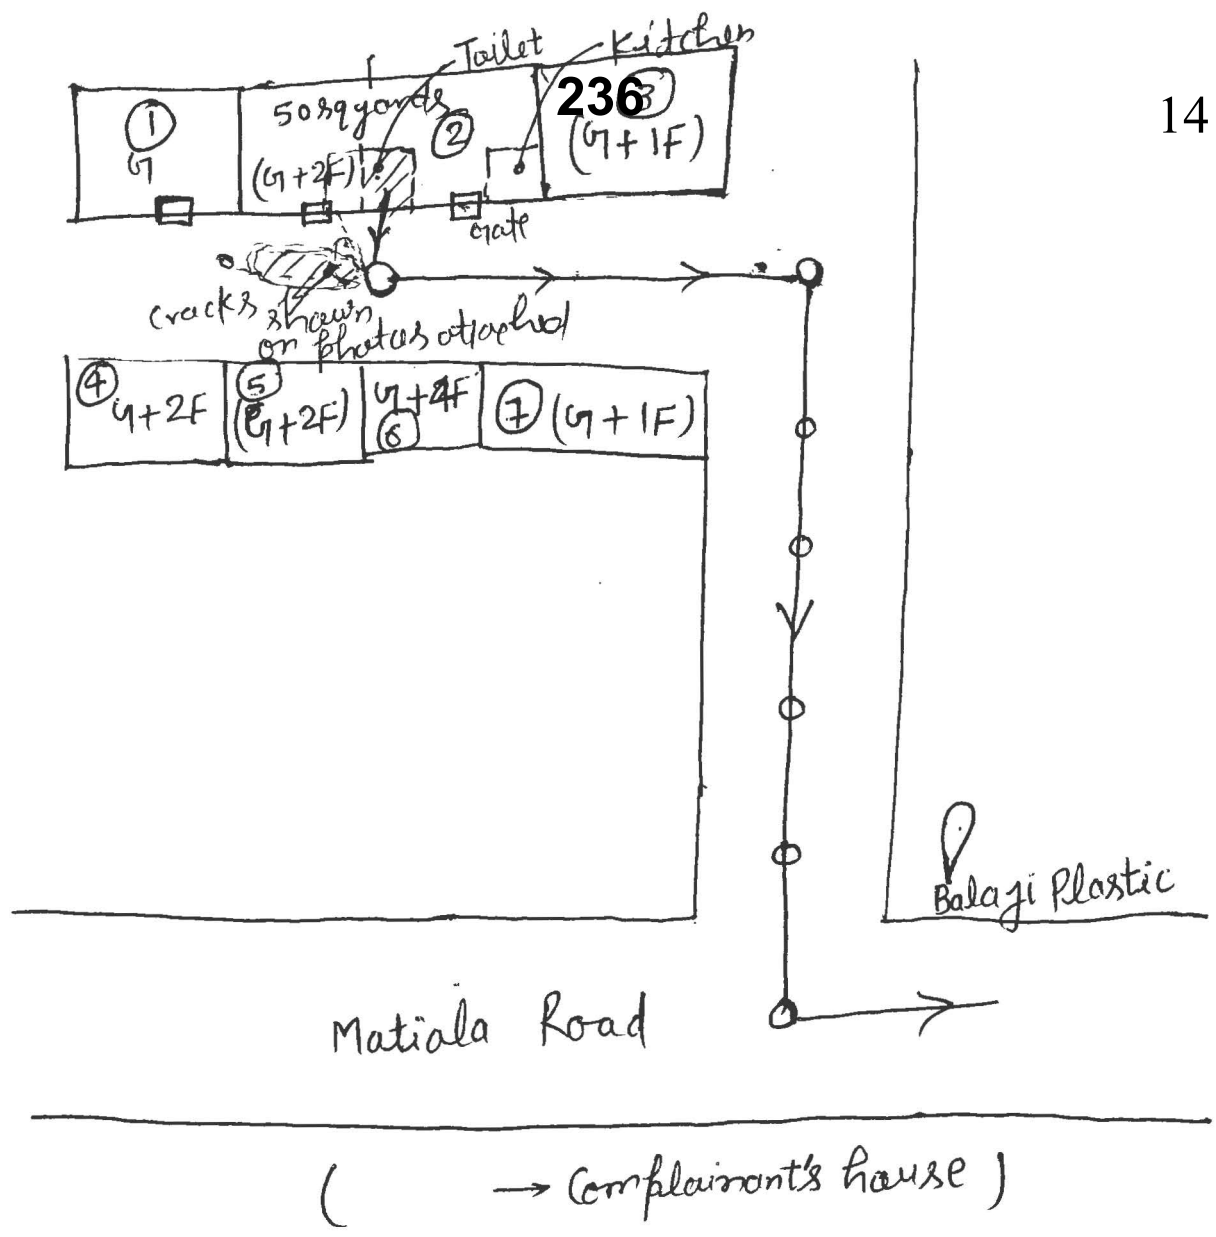 Toilet
Kitchen
236
14
1
G
50 sq yards
2
3
(G+1F)
(G+2F)
Gate
cracks shown
on photos attached
4
G+2F
5
(G+2F)
G+4F
6
7
(G+1F)
Balaji Plastic
Matiala Road
( → Complainant's house )